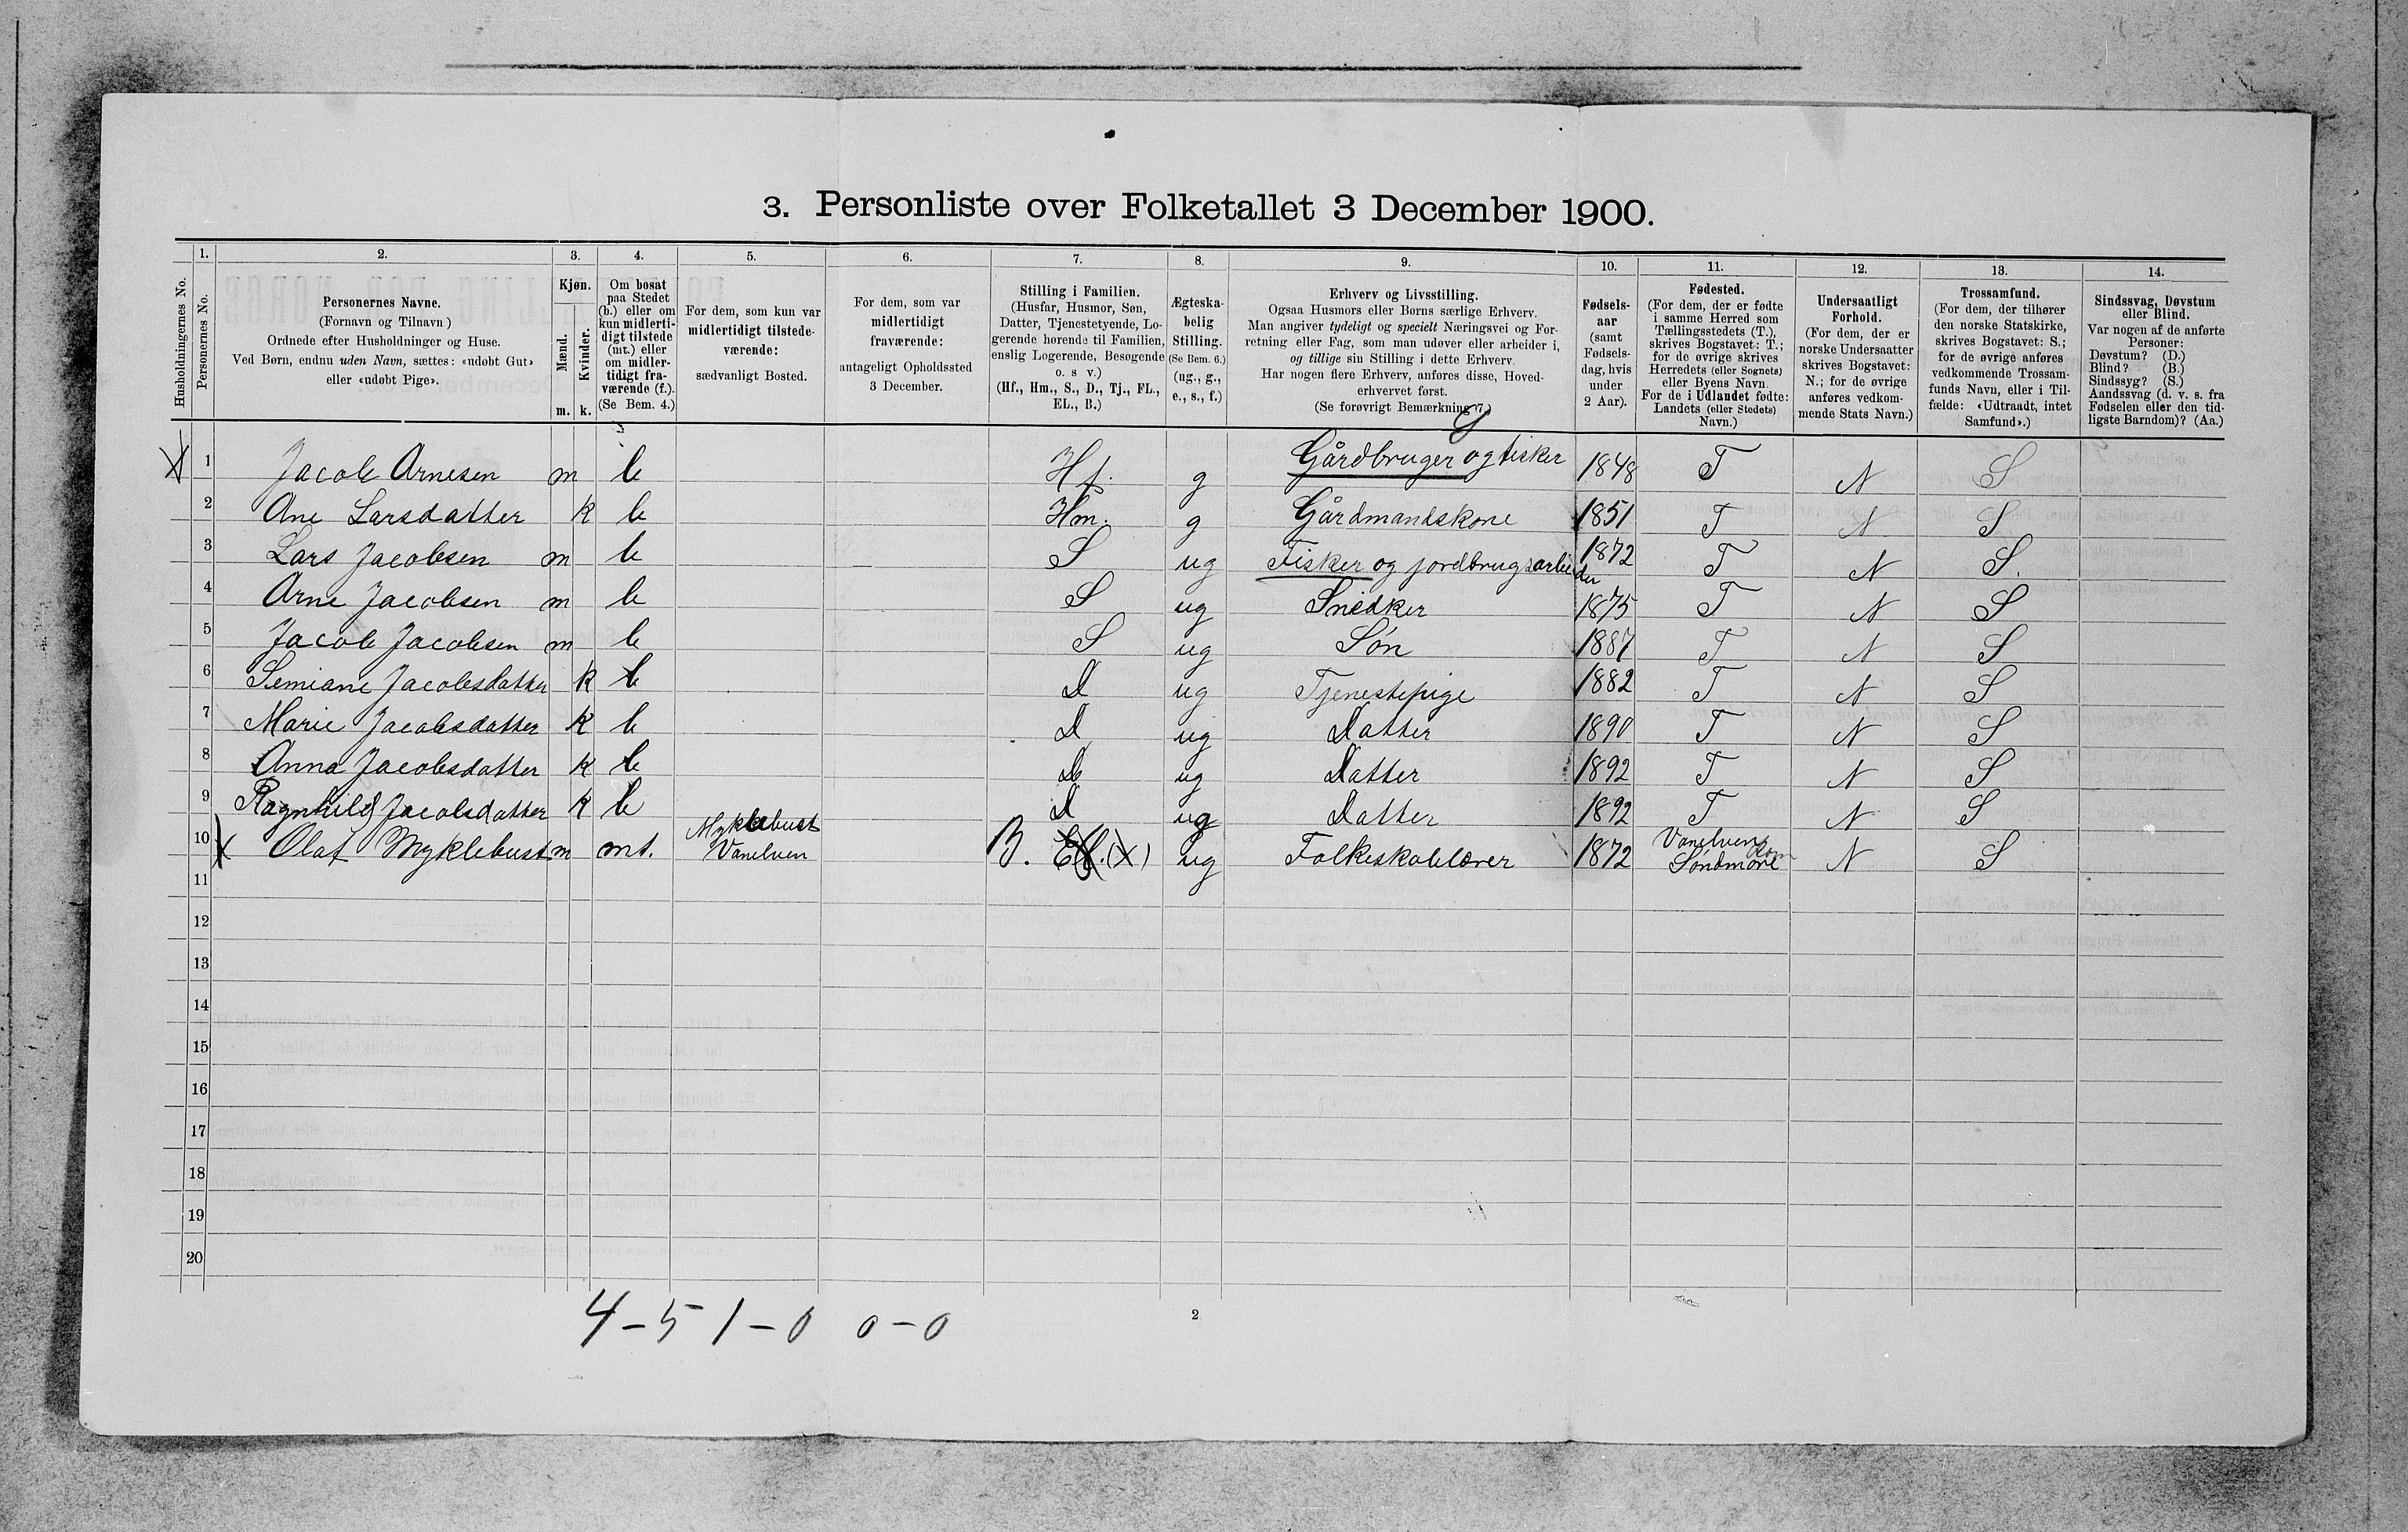 3. Personliste over Folketallet 3 December 1900.
1. 2. 3. 4. 5. 6. 7. 8. 9. 10. 11. 12. 13. 14.
Husholdningernes No.
Personernes No.
Personernes Navne.
(Fornavn og Tilnavn)
Ordnede efter Husholdninger og Huse.
Ved Børn, endnu uden Navn, sættes: «udøbt Gut»
eller «udøbt Pige».
Kjøn.
Mænd.
Kvinder.
m. k.
Om bosat
paa Stedet
(b.) eller om
kun midlerti-
digt tilstede
(mt.) eller
om midler-
tidigt fra-
værende (f.).
(Se Bem. 4.)
For dem, som kun var
midlertidigt tilstede-
værende:
sædvanligt Bosted.
For dem, som var
midlertidigt
fraværende:
antageligt Opholdssted
3 December.
Stilling i Familien.
(Husfar, Husmor, Søn,
Datter, Tjenestetyende, Lo-
gerende hørende til Familien,
enslig Logerende, Besøgende
o. s v.)
(Hf., Hm., S., D., Tj., FL.,
EL., B.)
Ægteska-
belig
Stilling.
(Se Bem. 6.)
(ug., g.,
e., s., f.)
Erhverv og Livsstilling.
Ogsaa Husmors eller Børns særlige Erhverv.
Man angiver tydeligt og specielt Næringsvei og For-
retning eller Fag, som man udøver eller arbeider i,
og tillige sin Stilling i dette Erhverv.
Har nogen flere Erhverv, anføres disse, Hoved-
erhvervet først.
(Se forøvrigt Bemærkning 7.)
Fødsels-
aar
(samt
Fødsels-
dag, hvis
under
2 Aar).
Fødested.
(For dem, der er fødte
i samme Herred som
Tællingsstedets (T.),
skrives Bogstavet: T.;
for de øvrige skrives
Herredets (eller Sognets)
eller Byens Navn.
For de i Udlandet fødte:
Landets (eller Stedets)
Navn.)
Undersaatligt
Forhold.
(For dem, der er
norske Undersaatter
skrives Bogstavet:
N.; for de øvrige
anføres vedkom-
mende Stats Navn.)
Trossamfund.
(For dem, der tilhører
den norske Statskirke,
skrives Bogstavet: S.;
for de øvrige anføres
vedkommende Trossam-
funds Navn, eller i Til-
fælde: «Udtraadt, intet
Samfund».)
Sindssvag, Døvstum
eller Blind.
Var nogen af de anførte
Personer:
Døvstum? (D.)
Blind? (B.)
Sindssyg? (S.)
Aandssvag (d. v. s. fra
Fødselen eller den tid-
ligste Barndom)? (Aa.)
X 1 Jacob Arnesen m b Hf. g Gårdbruger og fisker 1848 T N S
2 Ane Larsdatter k b Hm. g Gårdmandskone 1851 T N S
3 Lars Jacobsen m b S ug Fisker og jordbrugsarbeider 1872 T N S.
4 Arne Jacobsen m b S ug Snedker 1875 T N S
5 Jacob Jacobsen m b S ug Søn 1887 T N S
6 Semiane Jacobsdatter k b D ug Tjenestepige 1882 T N S
7 Marie Jacobsdatter k b D ug Datter 1890 T N S
8 Anna Jacobsdatter k b D ug Datter 1892 T N S
9 Ragnhild Jacobsdatter k b D ug Datter 1892 T N S
10 X Olaf Myklebust m mt. Myklebust Vanelven B. El. (X) ug Folkeskolelærer 1872 Vanelven Søndmøre N S
11
12
13
14
15
16
17
18
19
20
4-5 1-0 0-0
2